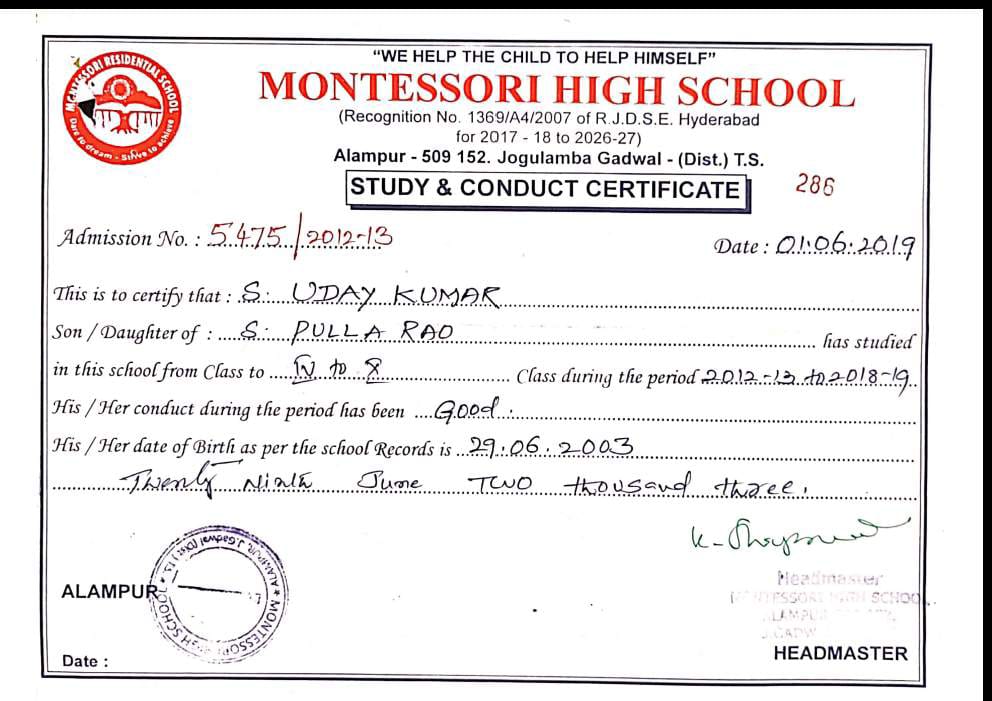 MONTESSORI RESIDENTIAL SCHOOL
Dare to dream - Strive to achieve
"WE HELP THE CHILD TO HELP HIMSELF"
MONTESSORI HIGH SCHOOL
(Recognition No. 1369/A4/2007 of R.J.D.S.E. Hyderabad
for 2017 - 18 to 2026-27)
Alampur - 509 152. Jogulamba Gadwal - (Dist.) T.S.
STUDY & CONDUCT CERTIFICATE
286
Admission No. : 5475/2012-13
Date : 01.06.2019
This is to certify that : S. UDAY KUMAR
Son / Daughter of : S. PULLA RAO has studied
in this school from Class to IV to X Class during the period 2012-13 to 2018-19
His / Her conduct during the period has been Good.
His / Her date of Birth as per the school Records is 29.06.2003
Twenty Ninth June Two thousand three.
ALAMPUR
MONTESSORI HIGH SCHOOL * ALAMPUR, J.Gadwal (Dist) T.S. *
Headmaster
MONTESSORI HIGH SCHOOL
ALAMPUR
J.GADW
HEADMASTER
Date :